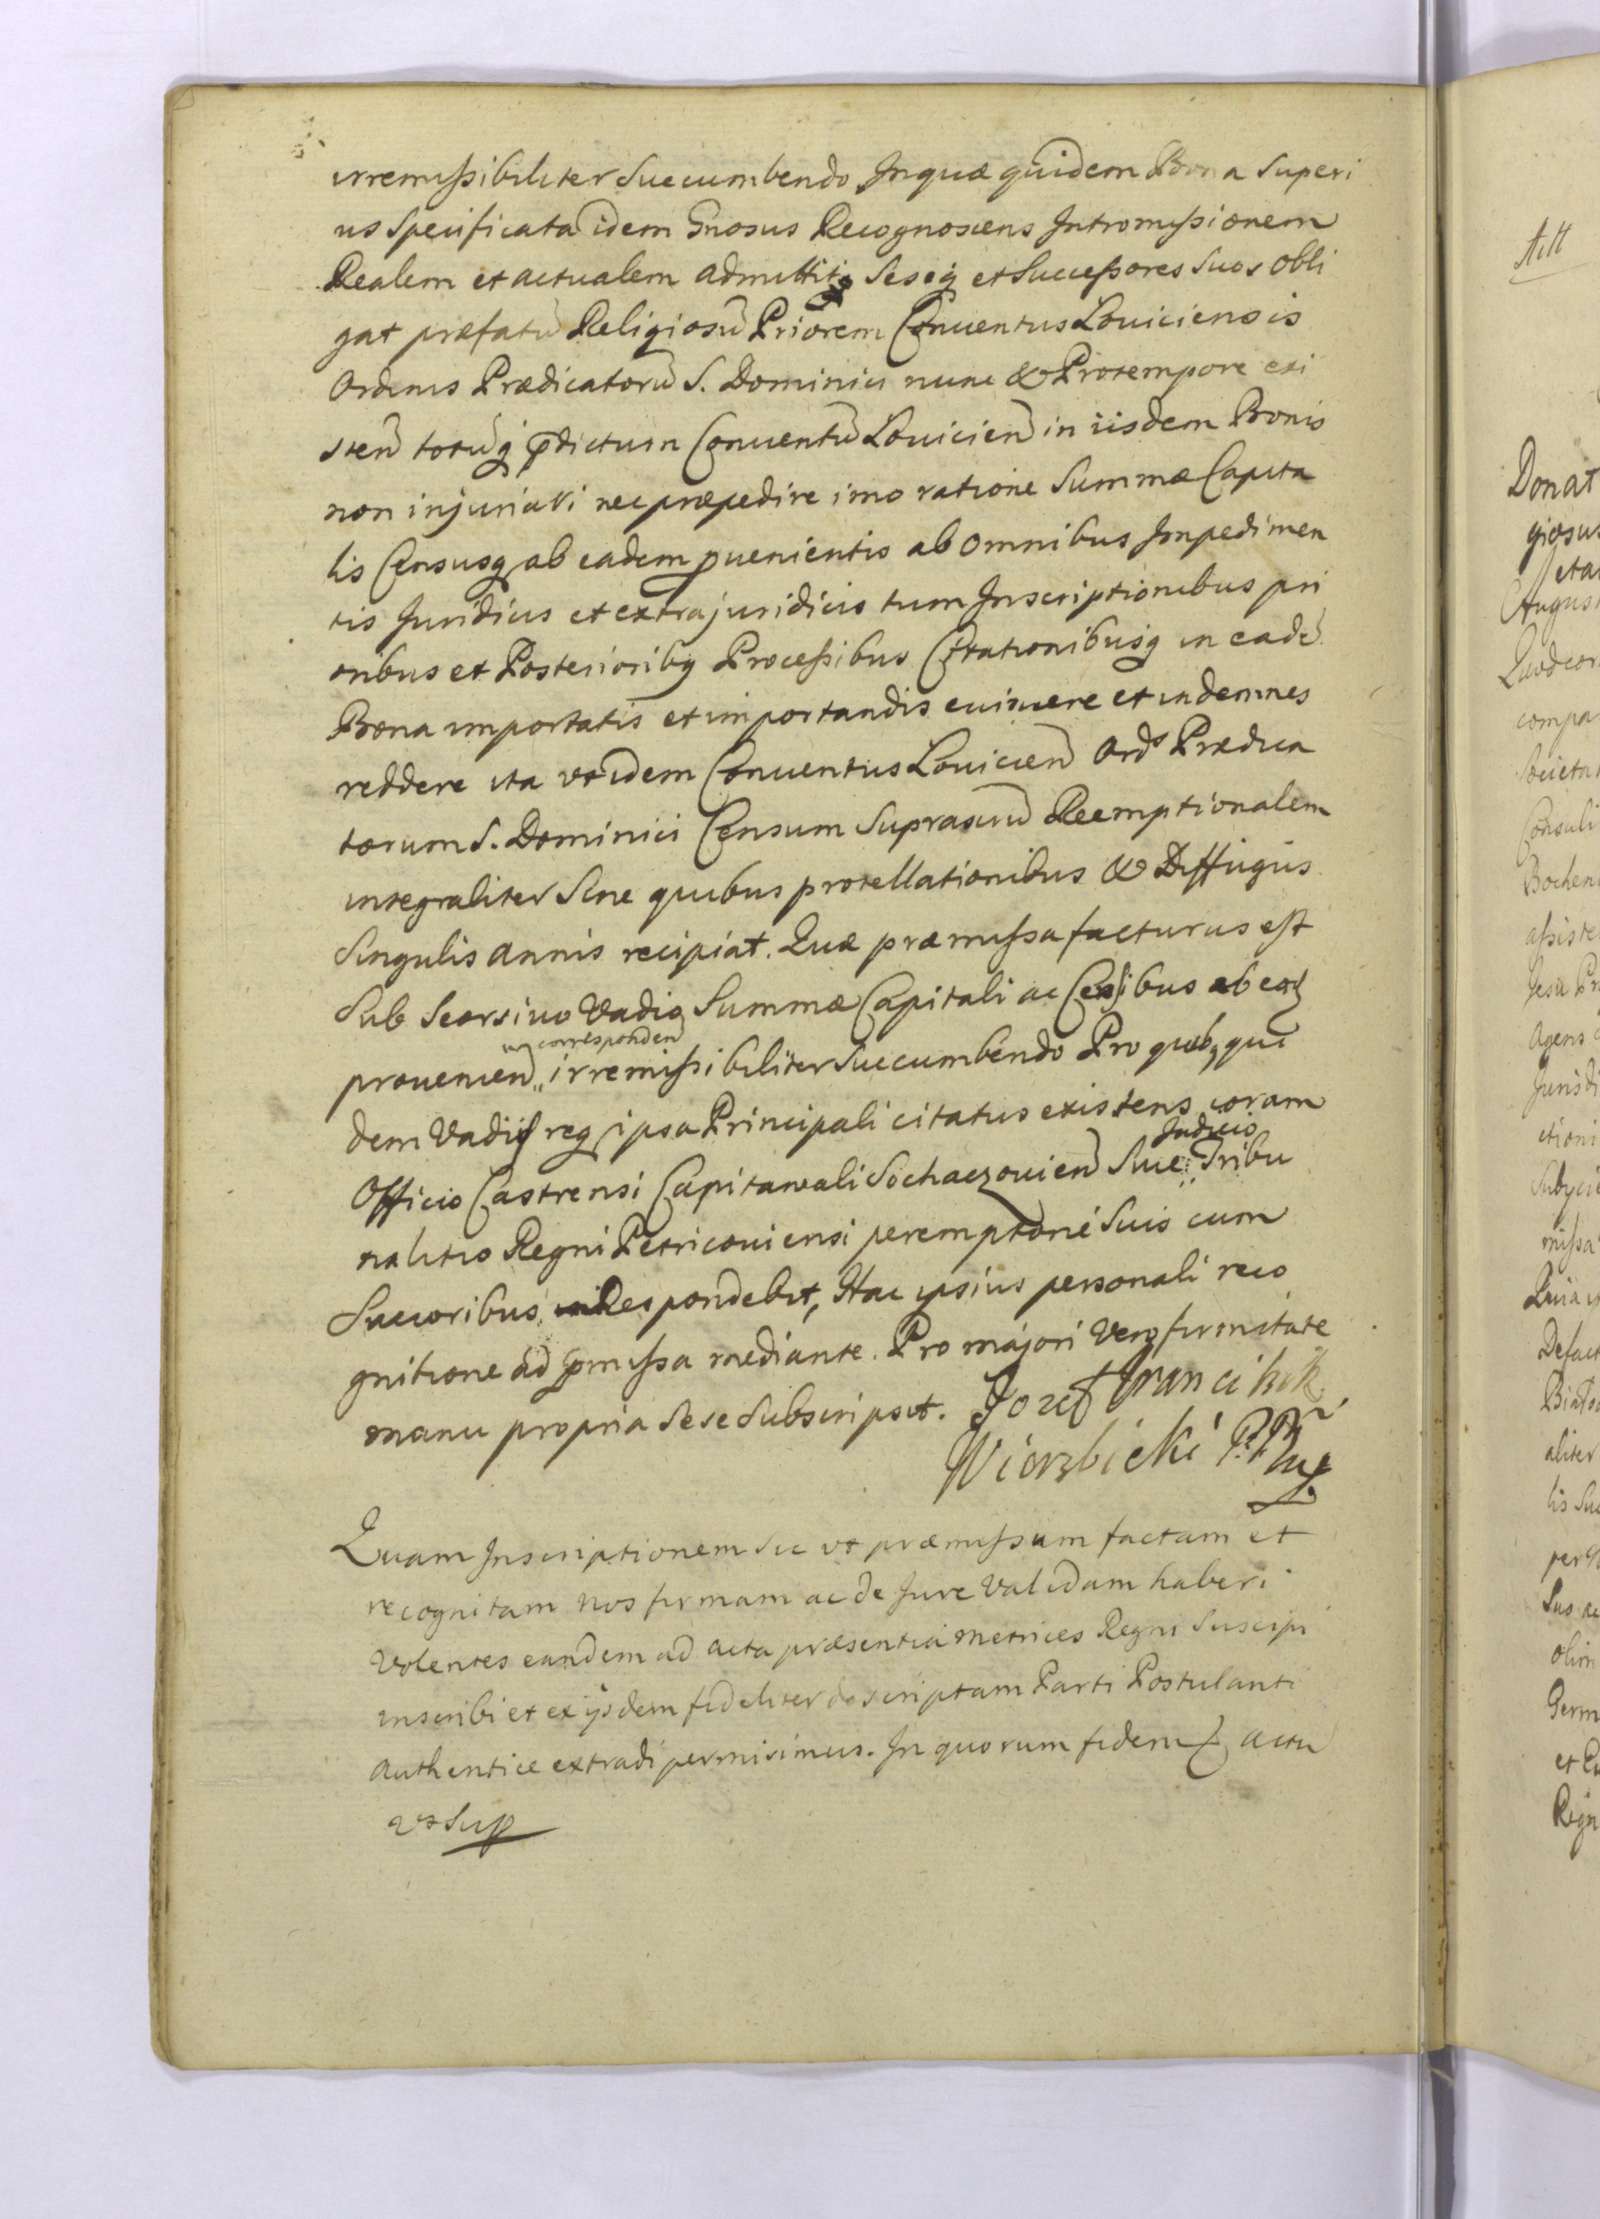 irremissibiliter Succumbendo Inquæ quidem Bona Superi
us Specificata idem Gnosus Recognoscens Intromissionem
Realem et actualem admittit Seseq et Successores Suos obli
gat præfatu Religiosu Priorem Conuentus Louiciensis
Ordinis Prædicatoru S. Dominici nunc & Protempore exi
sten totuq pdictum Conuentu Louicien in iisdem Bonis
non injuriari nec præpedire imo ratione Summæ Capita
lis Censusq ab eadem puenientis ab omnibus Impedimen
tis Juridicis et extrajuridicis tum Inscriptionibus pri
oribus et Posterioribq Processibus Citationibusq in eade
Bona importatis et importandis euincere et indemnes
reddere ita vt idem Conuentus Louicien Ords Prædica
torum S. Dominici Censum Suprascru Reemptionalem
integraliter Sine quibus protellationibus & Diffugiis
Singulis annis recipiat. Quæ præmissa facturus est
Sub Seorsiuo Vadio Summæ Capitali ac Censibus ab ea
corresponden
prouenien irremissibiliter Succumbendo Pro quibq qui
dem Vadiis req ipsa Principali citatus existens coram
Judicio
Officio Castrensi Capitaneali Sochaczouien Siue Tribu
nalitio Regni Petricouiensi peremptorie Suis cum
Succoribus Respondebit, Hac ipsius personali reco
gnitione ad pmissa mediante. Pro majori Vero firmitate
manu propria Sese Subscripsit. Jozef Franciszek
Wierzbicki
Quam Inscriptionem Sic vt præmissum factam et
recognitam nos firmam ac de Jure Validam haberi
Volentes eandem ad acta præsentia Metrices Regni Suscipi
inscribi et ex ijsdem fideliter descriptam Parti Postulanti
authentice extradi permisimus. In quorum fidem actu
vt Sup